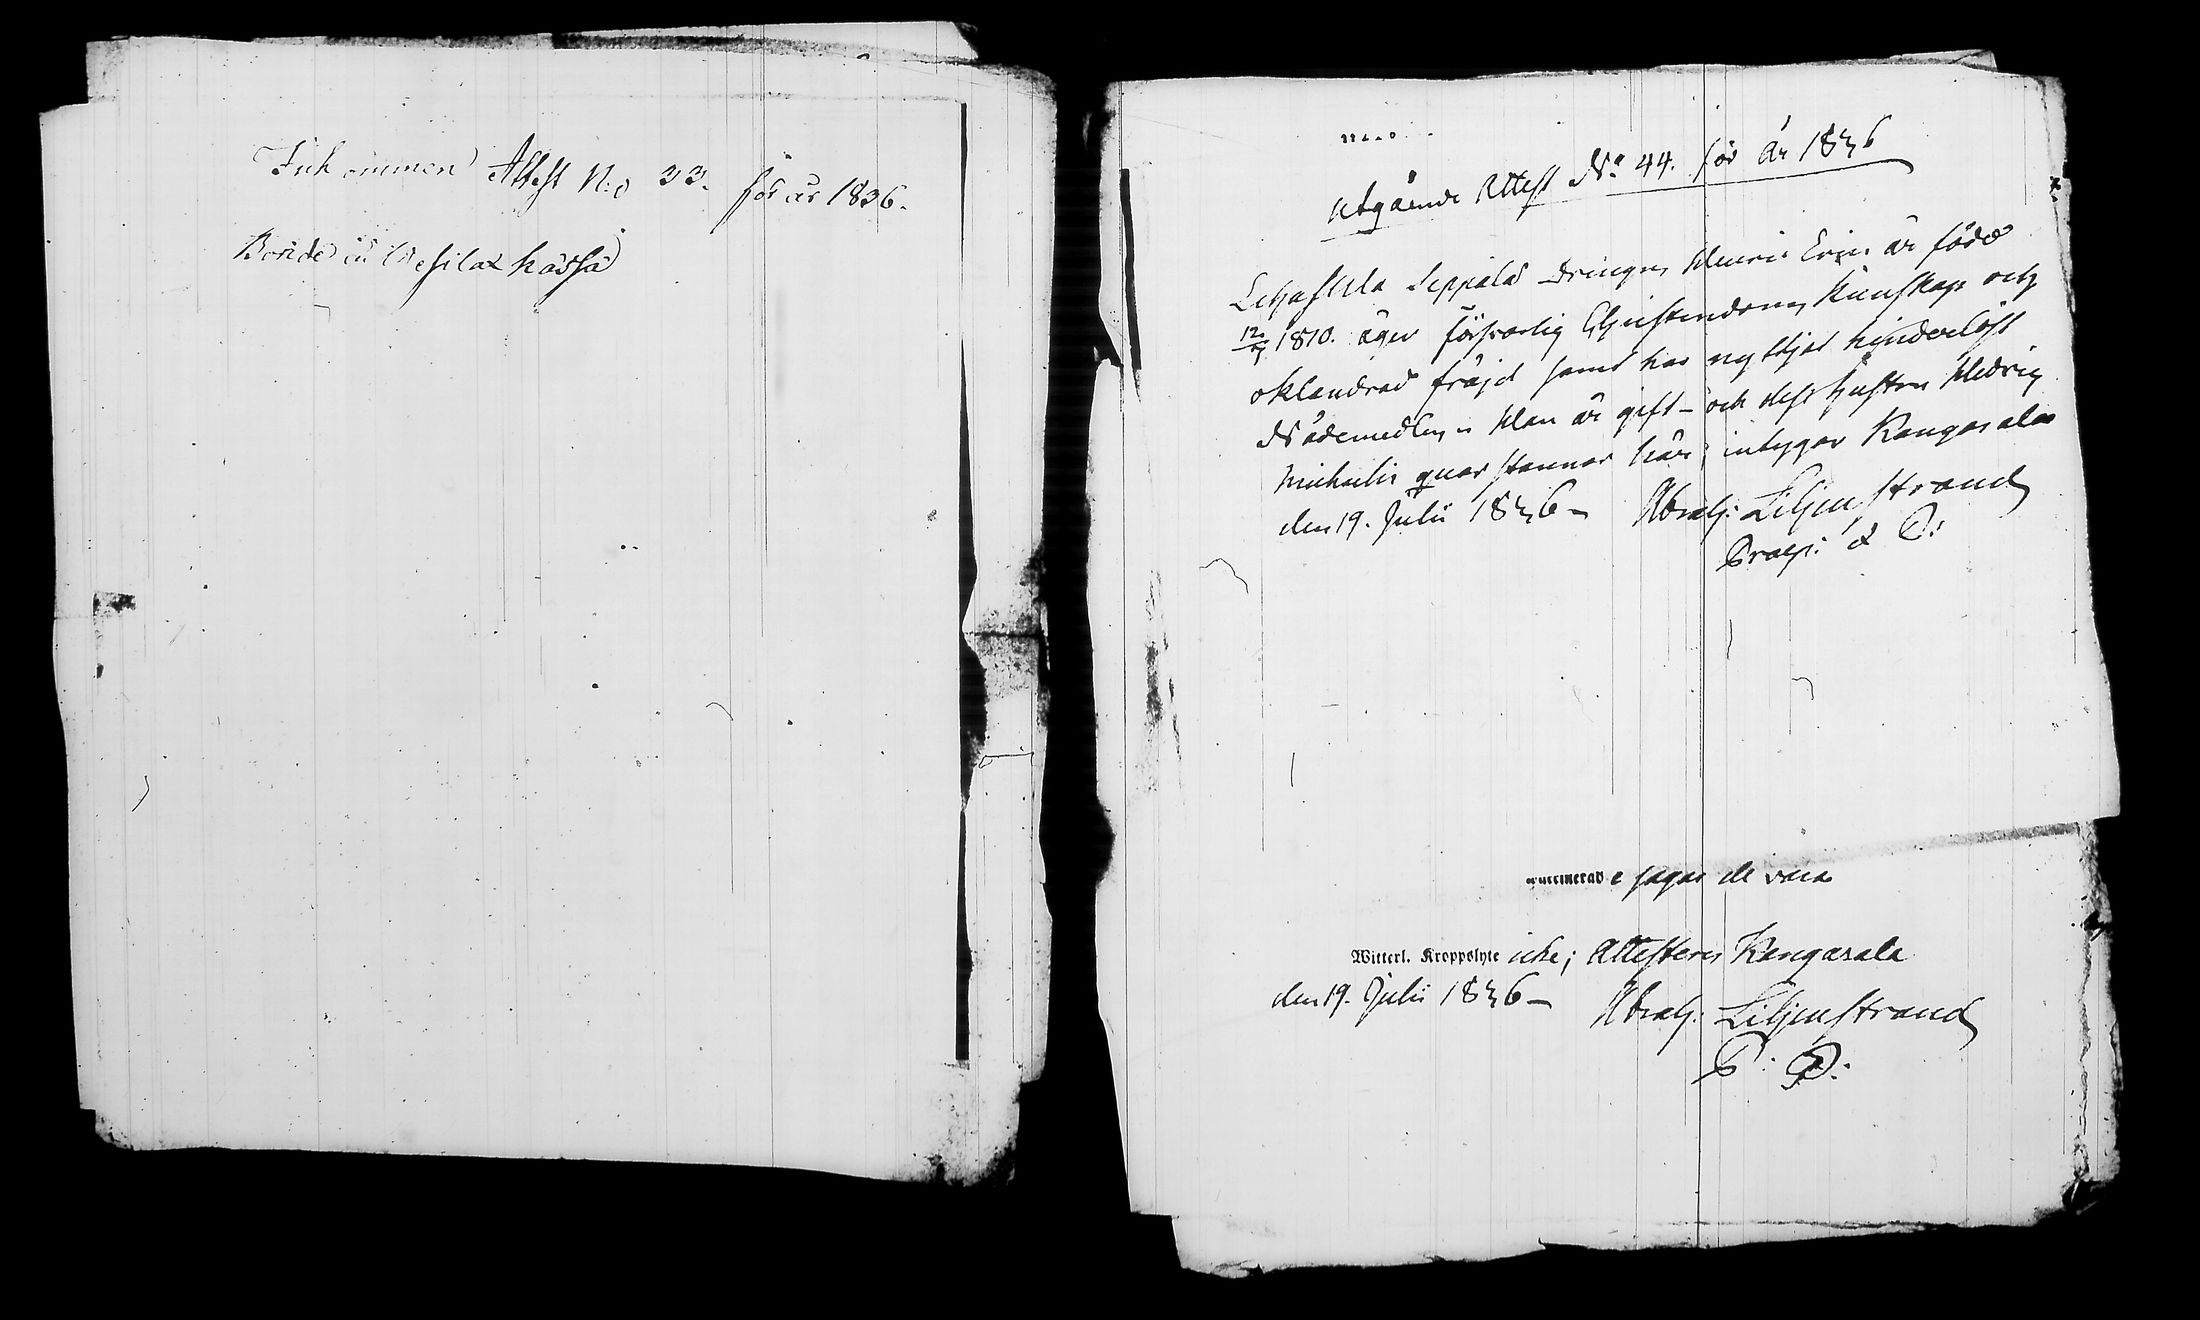 Inkommen Attest N:o 33. för år 1836.
Boride in Wesilax kåssa
Utgående Attest No 44. för år 1836
Seppälä Drängen Henric Eric är född
12/7 1810. äger försvarlig Christendoms kunskap och
oklandrad fräjd samt har nyttjat hinderlöst
Nådemedlen. Han är gift – och dess hustru Hedvig
Michelin quarstannar här; intygar Kangasala
den 19. Julii 1836 – Abrah: Liljenstrand
Praep: & P:
e sagas de vara
Witterl. Kroppslyte icke; Attesteras Kangasala
den 19. Julii 1836 – Abrah: Liljenstrand
P: P: